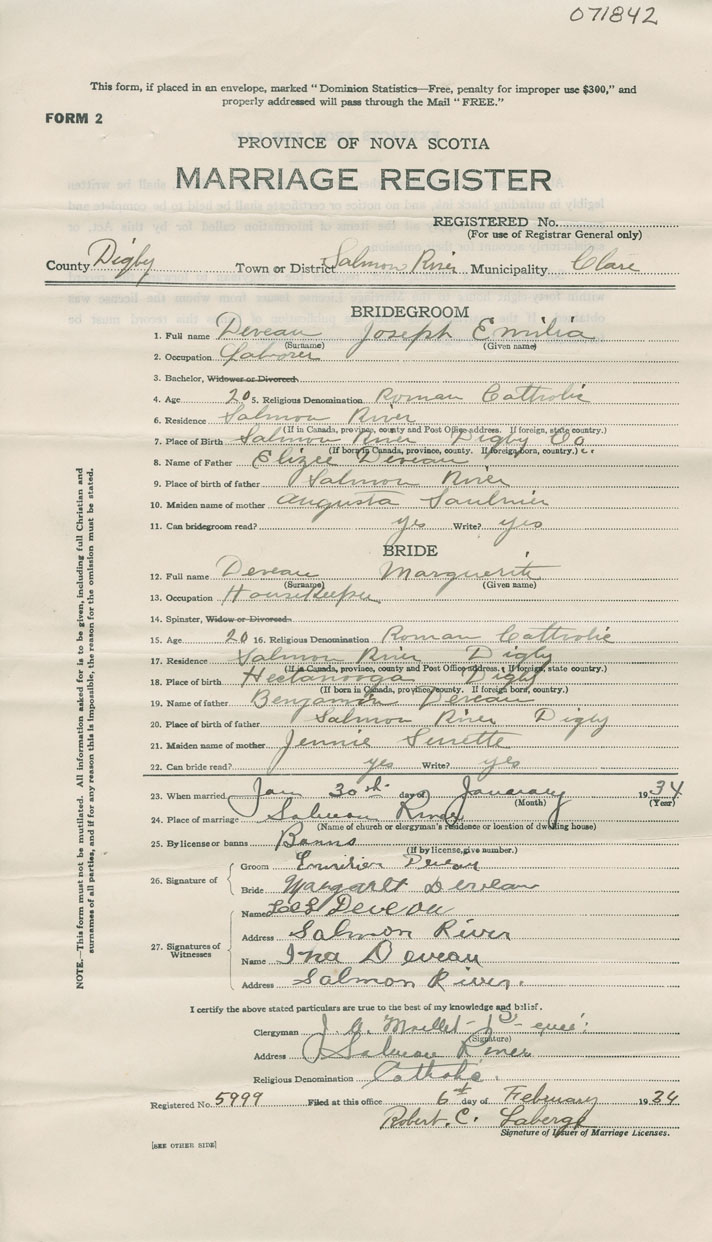 071842
This form, if placed in an envelope, marked "Dominion Statistics—Free, penalty for improper use $300," and
properly addressed will pass through the Mail "FREE."
FORM 2
PROVINCE OF NOVA SCOTIA
MARRIAGE REGISTER
REGISTERED No.
(For use of Registrar General only)
County Digby Town or District Salmon River Municipality Clare
BRIDEGROOM
1. Full name Deveau Joseph Emilia
(Surname) (Given name)
2. Occupation Laborer
3. Bachelor, Widower or Divorced
4. Age 20 5. Religious Denomination Roman Catholic
6. Residence Salmon River
(If in Canada, province, county and Post Office address. If foreign, state country.)
7. Place of Birth Salmon River Digby Co
(If born in Canada, province, county. If foreign born, country.)
8. Name of Father Elizee Deveau
9. Place of birth of father Salmon River
10. Maiden name of mother Augusta Saulnier
11. Can bridegroom read? yes Write? yes
BRIDE
12. Full name Deveau Marguerite
(Surname) (Given name)
13. Occupation Housekeeper
14. Spinster, Widow or Divorced
15. Age 20 16. Religious Denomination Roman Catholic
17. Residence Salmon River Digby
(If in Canada, province, county and Post Office address. If foreign, state country.)
18. Place of birth Hectanooga Digby
(If born in Canada, province, county. If foreign born, country.)
19. Name of father Benjamin Deveau
20. Place of birth of father Salmon River Digby
21. Maiden name of mother Jennie Surette
22. Can bride read? yes Write? yes
23. When married Jan 30th day of January 1934
(Month) (Year)
24. Place of marriage Salmon River
(Name of church or clergyman's residence or location of dwelling house)
25. By license or banns Banns
(If by license, give number.)
26. Signature of
Groom Deveau
Bride Margaret Deveau
27. Signatures of Witnesses
Name Deveau
Address Salmon River
Name Ina Deveau
Address Salmon River.
I certify the above stated particulars are true to the best of my knowledge and belief.
Clergyman Maillet
(Signature)
Address Salmon River
Religious Denomination Catholic.
Registered No. 5999 Filed at this office 6th day of February 1934
Robert. C. Laberge
Signature of Issuer of Marriage Licenses.
[SEE OTHER SIDE]
NOTE.—This form must not be mutilated. All information asked for is to be given, including full Christian and
surnames of all parties, and if for any reason this is impossible, the reason for the omission must be stated.